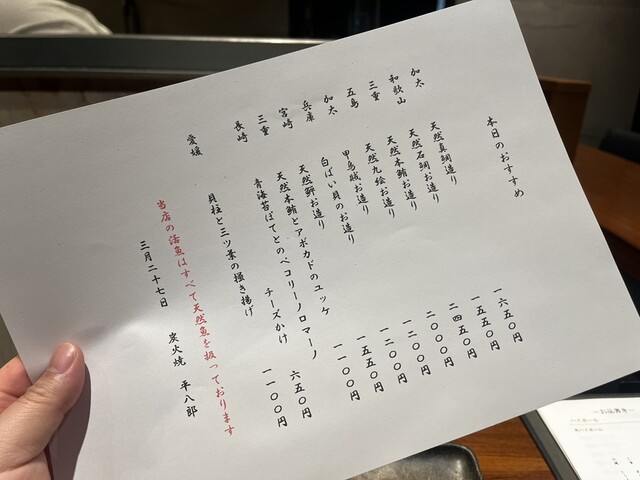 本日のおすすめ
加太 天然真鯛造り 一六五〇円
和歌山 天然石鯛お造り 一五五〇円
三重 天然本鮪お造り 二四五〇円
五島 天然九絵お造り 二〇〇〇円
加太 甲烏賊お造り 一二〇〇円
兵庫 白ばい貝のお造り 一二〇〇円
宮崎 天然鰤お造り 一五五〇円
三重 天然本鮪とアボカドのユッケ 一一〇〇円
長崎 青海苔ぽてとのペコリーノロマーノ
チーズかけ 六五〇円
愛媛 貝柱と三ツ葉の掻き揚げ 一一〇〇円
当店の活魚はすべて天然魚を扱っております
三月二十七日 炭火焼 平八郎